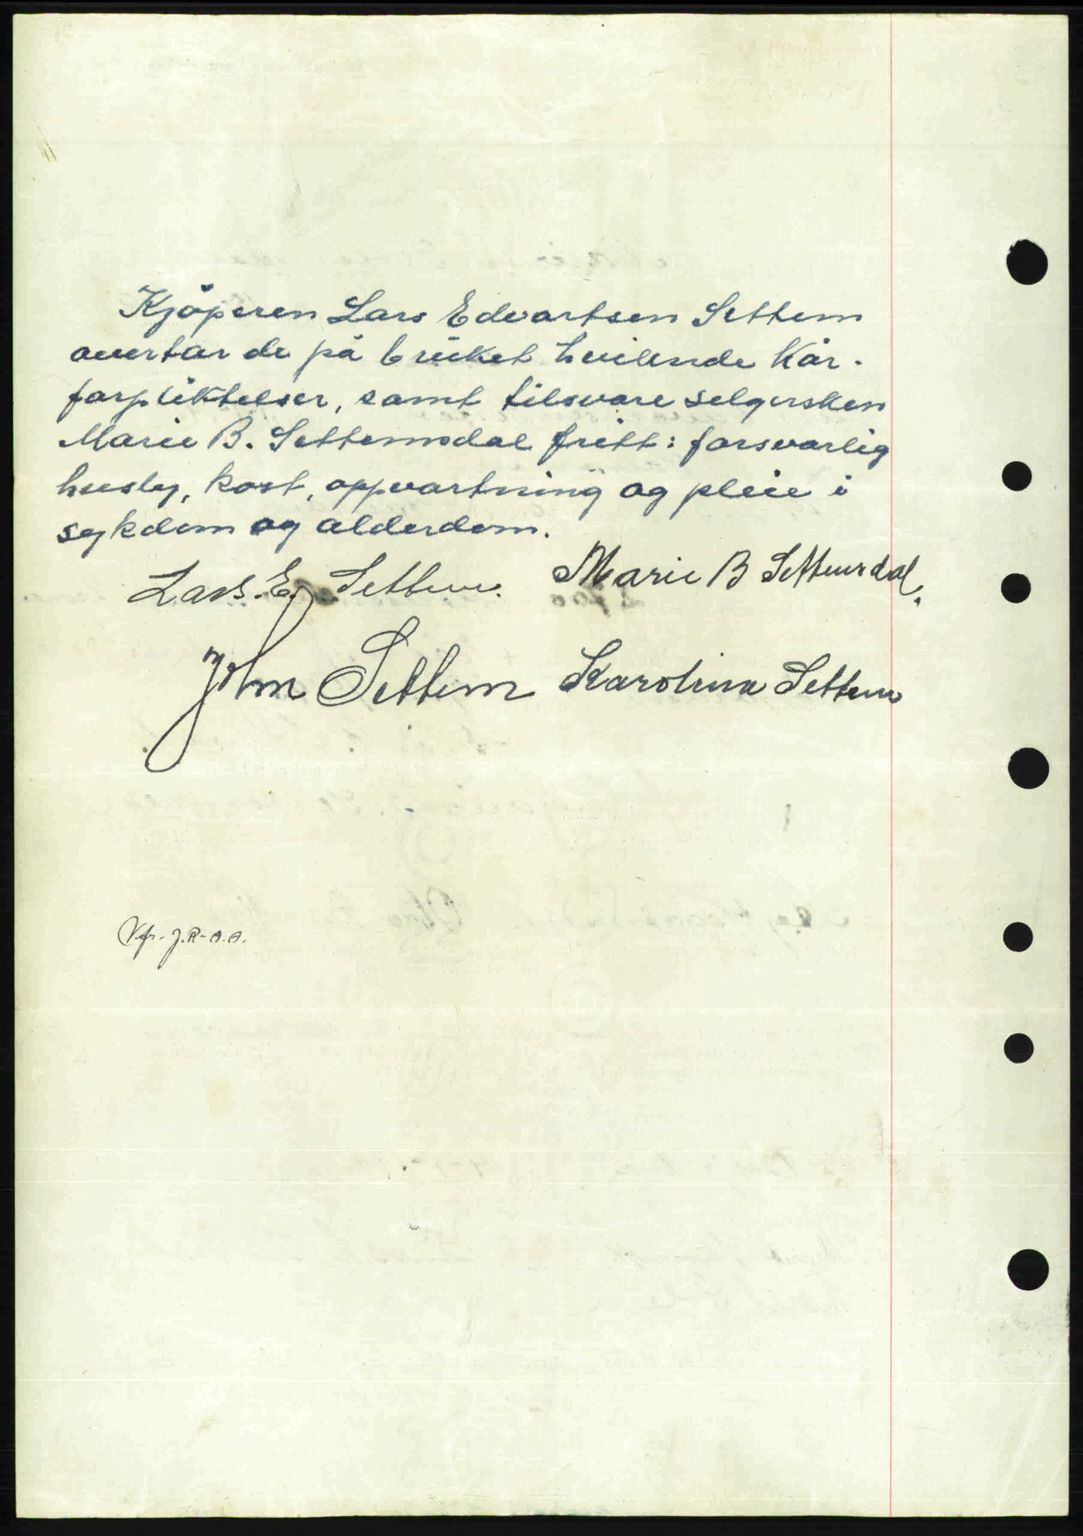 Kjöperen Lars Edvartsen Settem
overtar de på bruket hvilende kår-
forpliktelser, samt tilsvare selgersken
Marie B. Settemsdal fritt: forsvarlig
husly, kost, oppvartning og pleie i
sykdom og alderdom.
Lars. E. Settem. Marie B Settemsdal.
John Settem Karolina Settem
J.R-A.A.